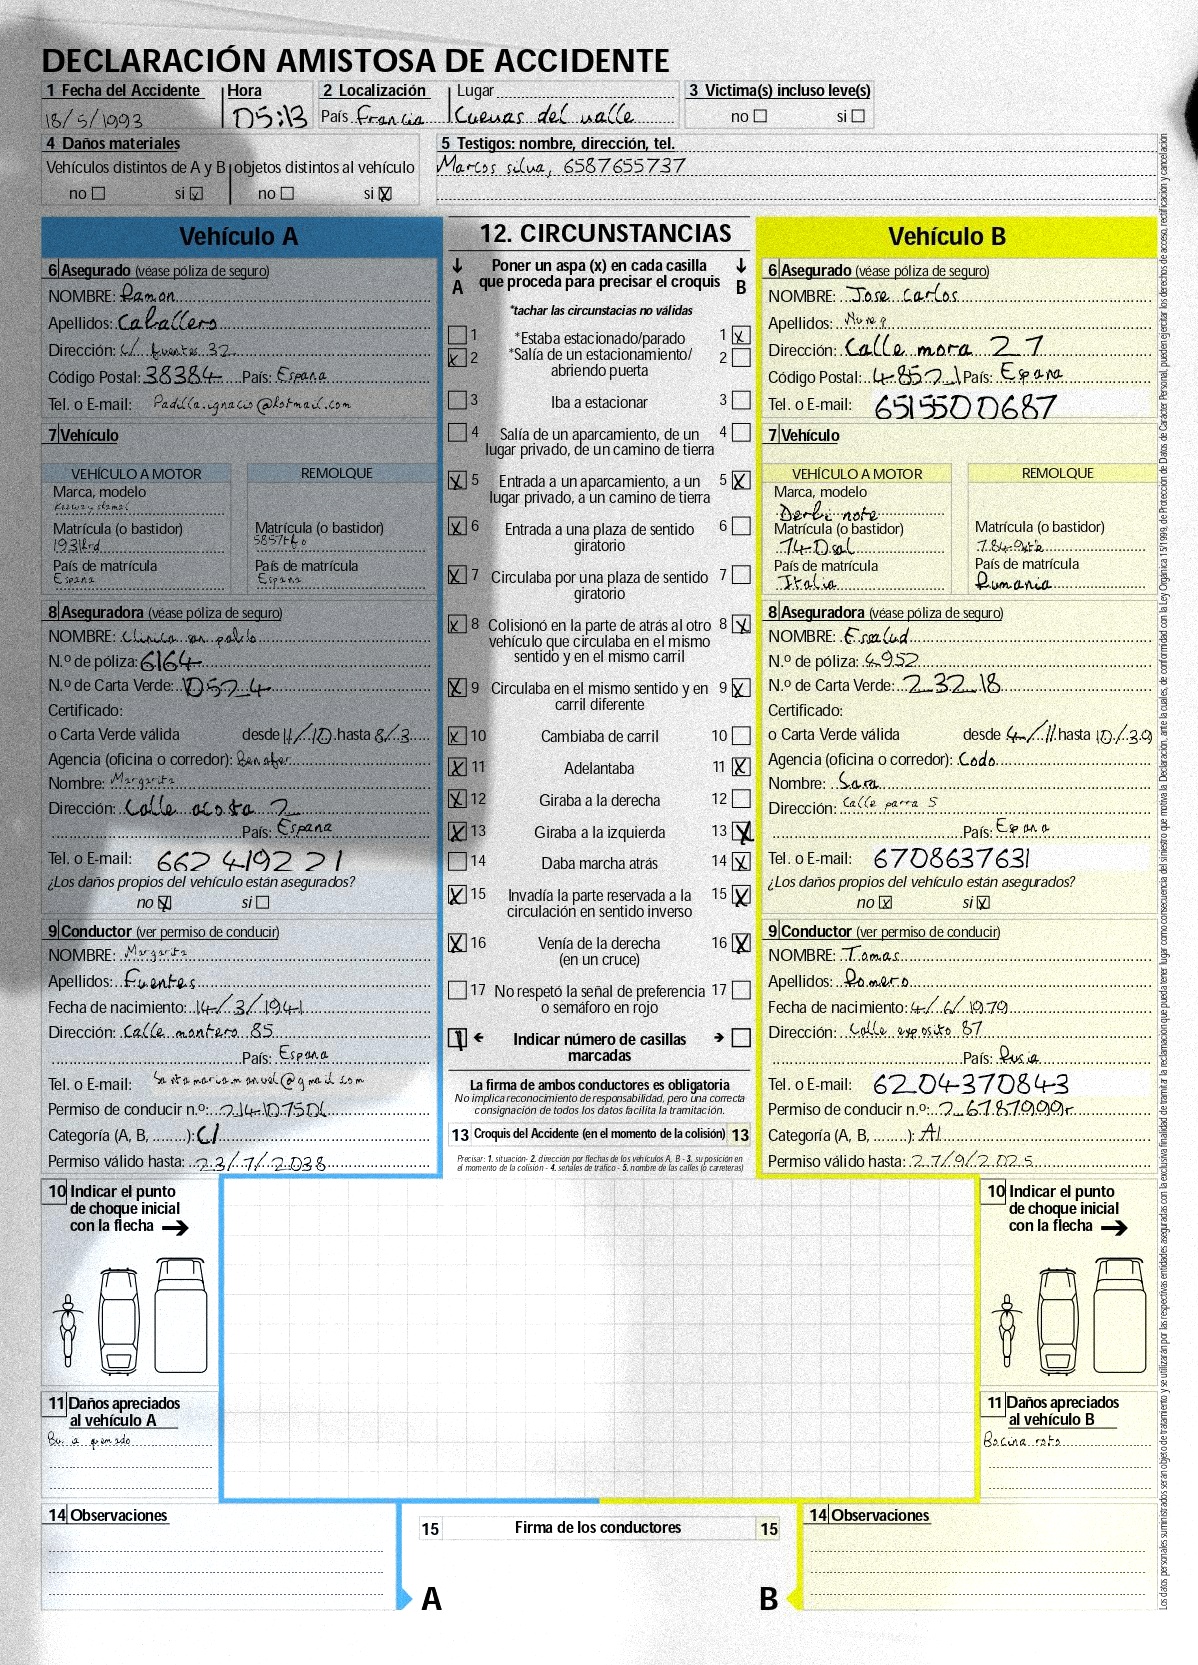 DECLARACIÓN AMISTOSA DE ACCIDENTE
1 Fecha del Accidente Hora 2 Localización Lugar 3 Victima(s) incluso leve(s)
18/5/1993 05:13 País Francia Cuevas del valle no si
4 Daños materiales 5 Testigos: nombre, dirección, tel.
Vehículos distintos de A y B objetos distintos al vehículo Marcos silva, 6587655737
no si X no si X
Vehículo A
6 Asegurado (véase póliza de seguro)
NOMBRE: Ramon
Apellidos: Caballero
Dirección: C/ fuentes 32
Código Postal: 38384 País: Espana
Tel. o E-mail: Padilla.ignacio@hotmail.com
7 Vehículo
VEHÍCULO A MOTOR REMOLQUE
Marca, modelo
Matrícula (o bastidor) Matrícula (o bastidor)
País de matrícula País de matrícula
Espana Espana
8 Aseguradora (véase póliza de seguro)
NOMBRE: Clinica san pablo
N.º de póliza: 6164
N.º de Carta Verde: 0524
Certificado:
o Carta Verde válida desde 11/10 hasta 8/3
Agencia (oficina o corredor): Benafer
Nombre: Margarita
Dirección: Calle acosta 2
País: Espana
Tel. o E-mail: 662419221
¿Los daños propios del vehículo están asegurados?
no X si
9 Conductor (ver permiso de conducir)
NOMBRE: Margarita
Apellidos: Fuentes
Fecha de nacimiento: 14/3/1941
Dirección: Calle montero 85
País: Espana
Tel. o E-mail: Santamaria.manuel@gmail.com
Permiso de conducir n.º:
Categoría (A, B, ........): C1
Permiso válido hasta: 23/7/2038
12. CIRCUNSTANCIAS
A Poner un aspa (x) en cada casilla que proceda para precisar el croquis B
*tachar las circunstacias no válidas
1 *Estaba estacionado/parado 1 X
X 2 *Salía de un estacionamiento/ abriendo puerta 2
3 Iba a estacionar 3
4 Salía de un aparcamiento, de un lugar privado, de un camino de tierra 4
X 5 Entrada a un aparcamiento, a un lugar privado, a un camino de tierra 5 X
X 6 Entrada a una plaza de sentido giratorio 6
X 7 Circulaba por una plaza de sentido giratorio 7
X 8 Colisionó en la parte de atrás al otro vehículo que circulaba en el mismo sentido y en el mismo carril 8 X
X 9 Circulaba en el mismo sentido y en carril diferente 9 X
X 10 Cambiaba de carril 10
X 11 Adelantaba 11 X
X 12 Giraba a la derecha 12
X 13 Giraba a la izquierda 13 X
14 Daba marcha atrás 14 X
X 15 Invadía la parte reservada a la circulación en sentido inverso 15 X
X 16 Venía de la derecha (en un cruce) 16 X
17 No respetó la señal de preferencia o semáforo en rojo 17
Indicar número de casillas marcadas
La firma de ambos conductores es obligatoria
No implica reconocimiento de responsabilidad, pero una correcta
consignación de todos los datos facilita la tramitación.
13 Croquis del Accidente (en el momento de la colisión) 13
Precisar: 1. situación- 2. dirección por flechas de los vehículos A, B - 3. su posición en
el momento de la colisión - 4. señales de tráfico - 5. nombre de las calles (o carreteras)
Vehículo B
6 Asegurado (véase póliza de seguro)
NOMBRE: Jose carlos
Apellidos:
Dirección: Calle mora 27
Código Postal: 48521 País: Espana
Tel. o E-mail: 6515500687
7 Vehículo
VEHÍCULO A MOTOR REMOLQUE
Marca, modelo
Derbi
Matrícula (o bastidor) Matrícula (o bastidor)
País de matrícula País de matrícula
Italia Rumania
8 Aseguradora (véase póliza de seguro)
NOMBRE: Essalud
N.º de póliza: 4952
N.º de Carta Verde: 23218
Certificado:
o Carta Verde válida desde 4/11 hasta 10/39
Agencia (oficina o corredor): Codo
Nombre: Sara
Dirección: Calle parra 5
País: Espana
Tel. o E-mail: 6708637631
¿Los daños propios del vehículo están asegurados?
no X si X
9 Conductor (ver permiso de conducir)
NOMBRE: Tomas
Apellidos: Romero
Fecha de nacimiento: 4/6/1979
Dirección: Calle exposito 87
País: Rusia
Tel. o E-mail: 6204370843
Permiso de conducir n.º: 26787999r
Categoría (A, B, ........): A1
Permiso válido hasta: 27/9/2025
10 Indicar el punto de choque inicial con la flecha
10 Indicar el punto de choque inicial con la flecha
11 Daños apreciados al vehículo A
quemado
11 Daños apreciados al vehículo B
Bocina rota
14 Observaciones
15 Firma de los conductores 15
14 Observaciones
A B
Los datos personales suministrados seran objeto de tratamiento y se utilizarán por las respectivas entidades aseguradas con la exclusiva finalidad de tramitar la reclamación que pueda tener lugar como consecuencia del siniestro que motiva la Declaración, ante la cuales, de conformidad con la Ley Orgánica 15/1999, de Protección de Datos de Carácter Personal, pueden ejercitar los derechos de acceso, rectificación y cancelación